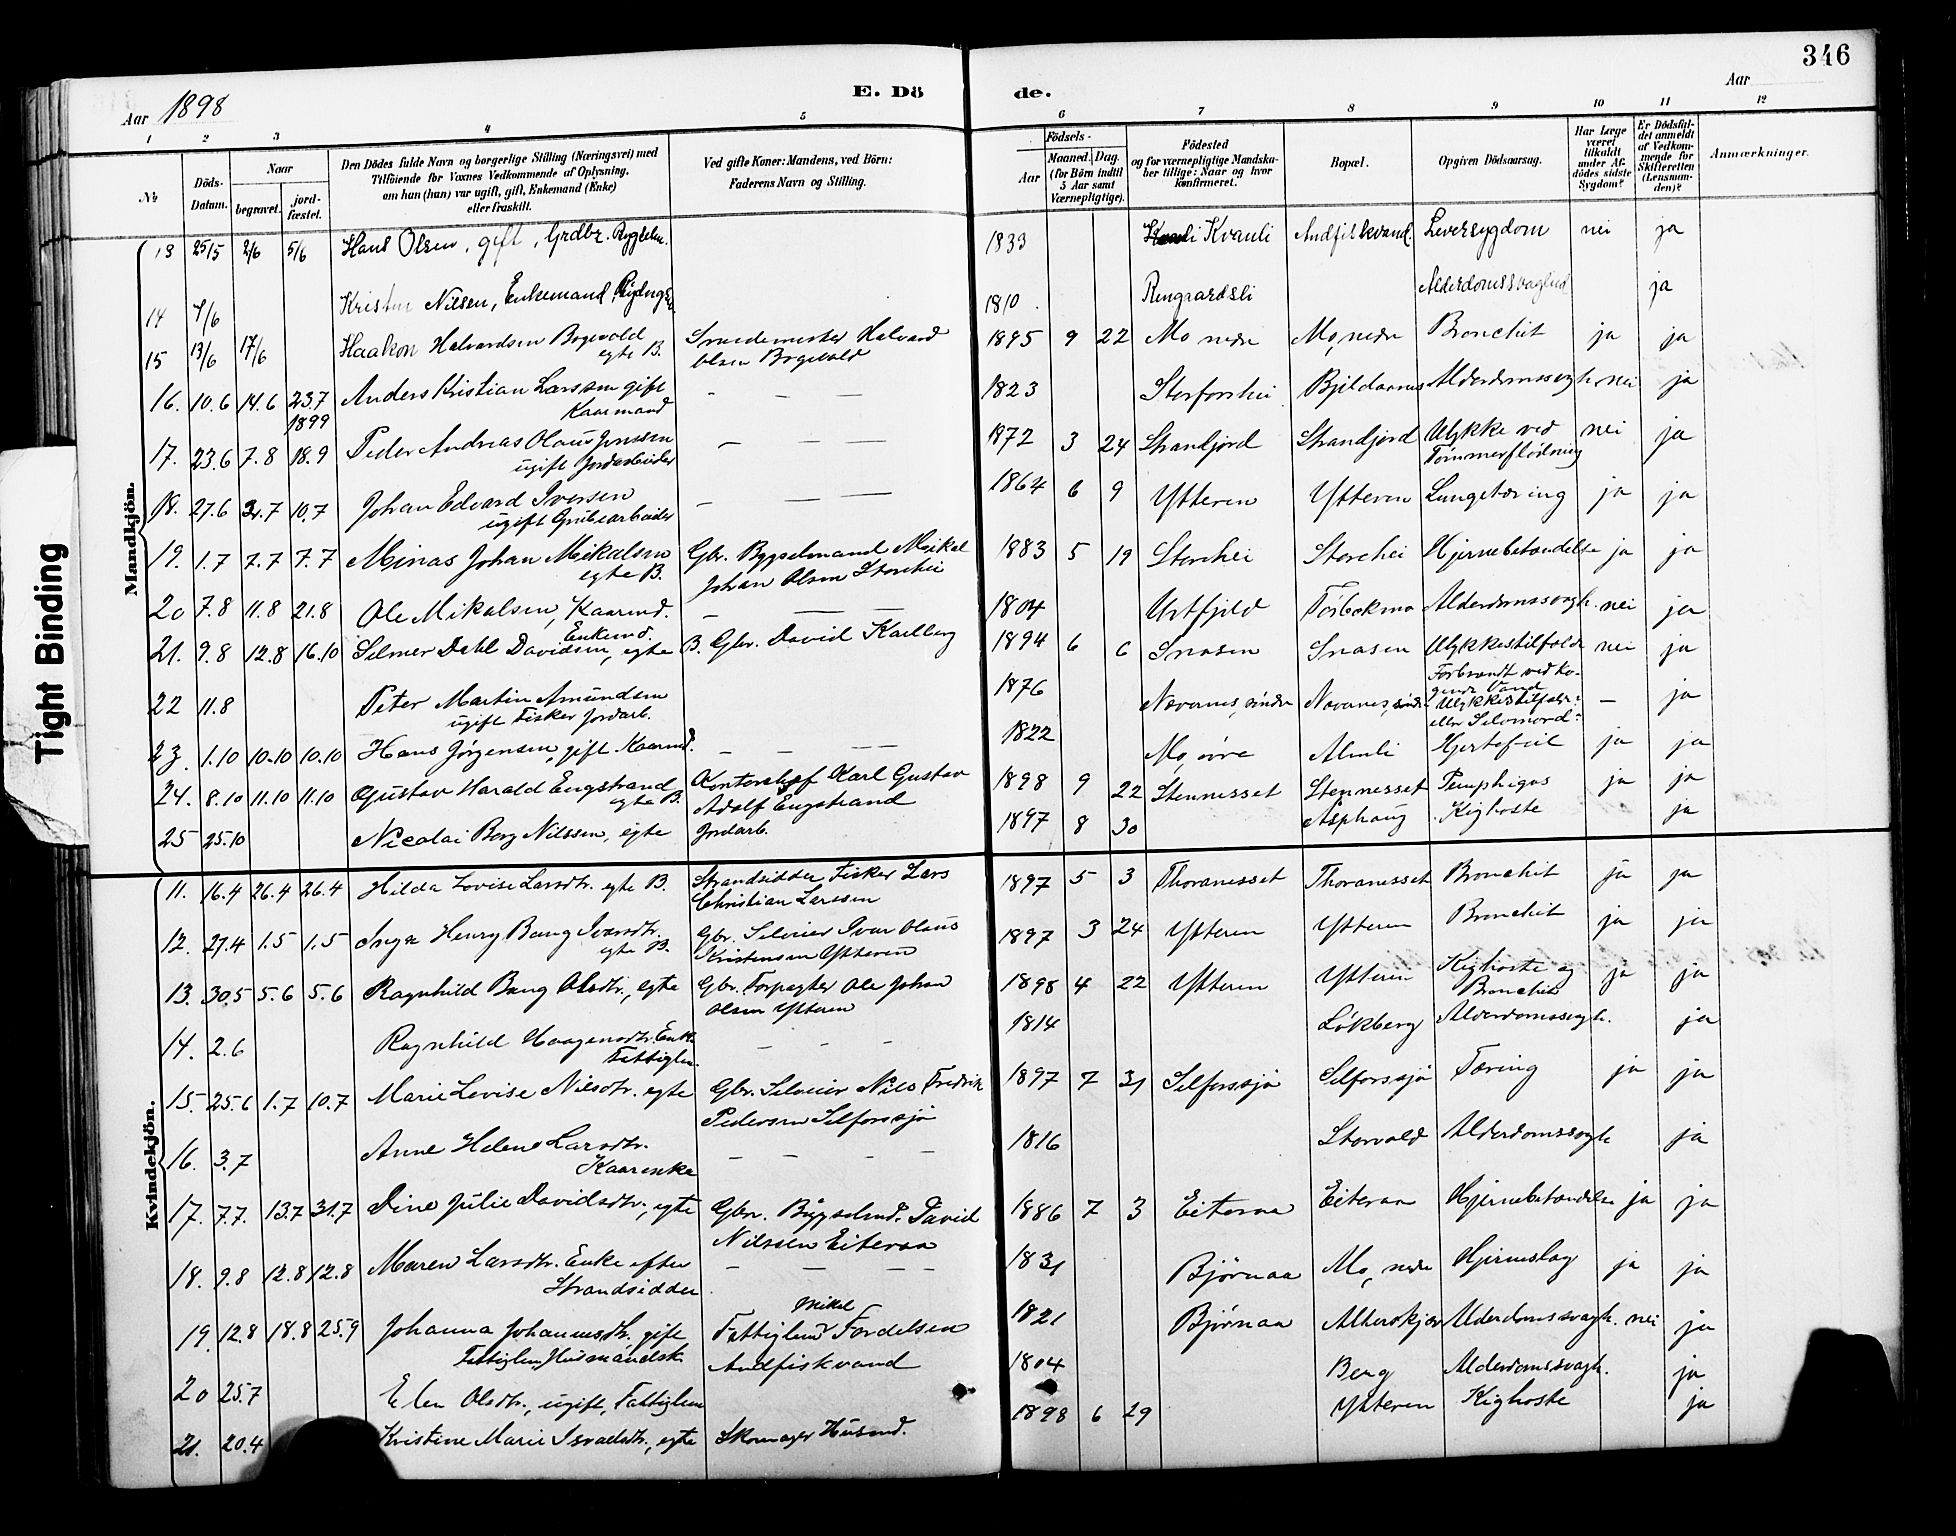 346
Aar 1898
E. Dö
de.
Aar
1 2 3 4 5 6 7 8 9 10 11 12
№
Döds-Datum.
Naar
begravet.
jord-fæstet.
Den Dödes fulde Navn og borgerlige Stilling (Næringsvei) med
Tilföiende for Voxnes Vedkommende af Oplysning,
om han (hun) var ugift, gift, Enkemand (Enke)
eller fraskilt.
Ved gifte Koner: Mandens, ved Börn:
Faderens Navn og Stilling.
Födsels-
Aar
Maaned.
Dag.
(for Börn indtil
5 Aar samt
Værnepligtige).
Födested
og for værnepligtige Mandska-
ber tillige: Naar og hvor
konfirmeret.
Bopæl.
Opgiven Dödsaarsag.
Har Læge
været
tilkaldt
under Af-
dödes sidste
Sygdom?
Er Dödsfal-
det anmeldt
af Vedkom-
mende for
Skifteretten
(Lensman-
den)?
Anmærkninger.
Tight Binding
Mandkjön.
13 25/5 2/6 5/6 Hans Olsen, gift, Grdbr. 1833 Kvanli Andfiskvand Leversygdom nei ja
14 7/6 Nilsen, Enkemand, 1810 Rengaardsli Alderdomssvaghed ja
15 13/6 17/6 Haakon Halvardsen Bogevold Smedemester Halvard 1895 9 22 Mo nedre Mo, nedre Bronchit ja ja
egte B. Olsen Bogevold
16. 10.6 14.6 23.7 Anders Kristian Larssen gift – – – 1823 Storforshei Alderdomssvagh. nei ja
1899 Kaarmand
17. 23.6 7.8 18.9 Peder Andreas Olaus Jonssen – – – 1872 3 24 Strandjord Strandjord Ulykke ved nei ja
ugift Jordarbeider Tømmerflødning
18. 27.6 7 10.7 Johan Edvard Iversen – – – 1864 6 9 Ytteren Ytteren Lungetæring ja ja
ugift Grubearbeider
19. 1.7 7.7 7.7 Minas Johan Mikalsen Gbr. Bygselmand Mikal 1883 5 19 Storhei Storhei Hjernebetændelse ja ja
egte B. Johan Olsen Storhei
20 7.8 11.8 21.8 Ole Mikalsen, Kaarmd. – – – 1804 Urtfjeld Alderdomssvagh. nei ja
Enkemd.
21. 9.8 12.8 16.10 Selmer Dahl Davidsen, egte B. Gbr. David Karlberg 1894 6 6 Snasen Snasen Ulykkestilfælde nei ja
Forbrændt ved ko-
gende Vand
22 11.8 Peter Martin Amundsen 1876 Nævernes, søndre Nævernes, søndre Ulykkestilfælde – ja
ugift Fisker Jordarb. eller Selvmord
23. 1.10 10.10 10.10 Hans Jørgensen, gift Kaarmd. – – – – 1822 Mo, øvre Almli Hjertefeil ja ja
24. 8.10 11.10 11.10 Gustav Harald Engstrand Kontorchef Karl Gustav 1898 9 22 Stennesset Stennesset Pemphigus ja ja
egte B. Adolf Engstrand
25 25.10 Nicolai Borg Nilssen, egte Jordarb. 1897 8 30 Asphaug Kighoste ja
Kvindekjön.
11. 16.4 26.4 26.4 Hilda Lovise Larsdtr. egte B. Strandsidder Fisker Lars 1897 5 3 Thoranesset Thoranesset Bronchit ja ja
Christian Larssen
12. 27.4 1.5 1.5 Inga Henry Bang Ivarsdtr. Gbr. Selveier Ivar Olaus 1897 3 24 Ytteren Ytteren Bronchit ja ja
egte B. Kristensen Ytteren
13. 30.5 5.6 5.6 Ragnhild Bang Olsdtr., egte Gbr. Forpagter Ole Johan 1898 4 22 Ytteren Ytteren Kighoste og ja ja
Olsen Ytteren Bronchit
14. 2.6 Ragnhild Haagensdtr. Enke – – – 1814 Løkberg Alderdomssvagh. ja
Fattiglem
15. 25.6 1.7 10.7 Marie Lovise Nilsdtr. egte Gbr. Selveier Nils Fredrik 1897 7 31 Selforssjø Selforssjø Tæring ja ja
Pedersen Selforssjø
16. 3.7 Anne Helene Larsdtr. – – – – 1816 Storvold Alderdomssvagh ja
Kaarenke
17. 7.7. 13.7 31.7 Dine Julie Davidsdtr., egte Gbr. Bygselmd. David 1886 7 3 Eiteraa Eiteraa Hjernebetændelse ja ja
Nilssen Eiteraa
18. 9.8 12.8 12.8 Maren Larsdtr. Enke efter – – – – 1831 Bjørnaa Mo, nedre Hjerneslag ja ja
Strandsidder
Mikal
19. 12.8 18.8 25.9 Johanna Johannesdtr. gift Fattiglem Fordelsen 1821 Bjørnaa Alderdomssvagh. nei ja
Fattiglem, Husmandsk. Andfiskvand
20 25.7 Elen Olsdtr., ugift, Fattiglem 1804 Berg Alderdomssvagh. ja
21. 20.4 Kristine Marie Israelsdtr., egte Skomager Husmd. 1898 6 29 Ytteren Kighoste ja